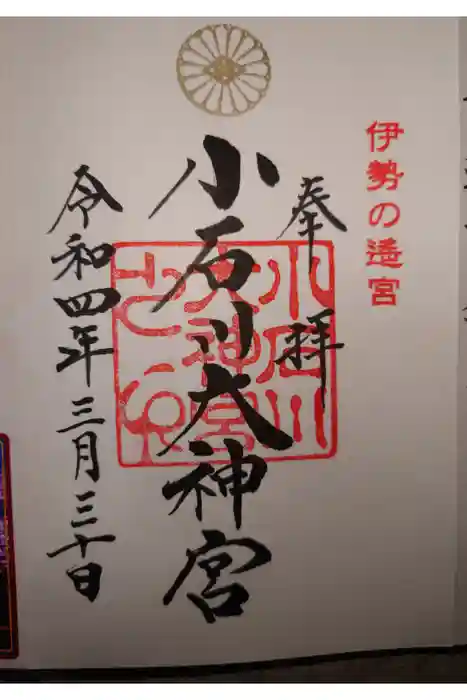 伊勢の遥宮
奉拝
小石川大神宮
小石川
大神宮
令和四年三月三十日